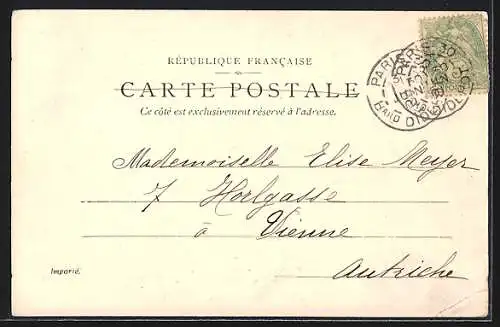 RÉPUBLIQUE FRANÇAISE
CARTE POSTALE
Ce côté est exclusivement réservé à l'adresse.
PARIS
Mademoiselle Elise Meyer
7 Horlgasse
à Vienne
Autriche
Importé.